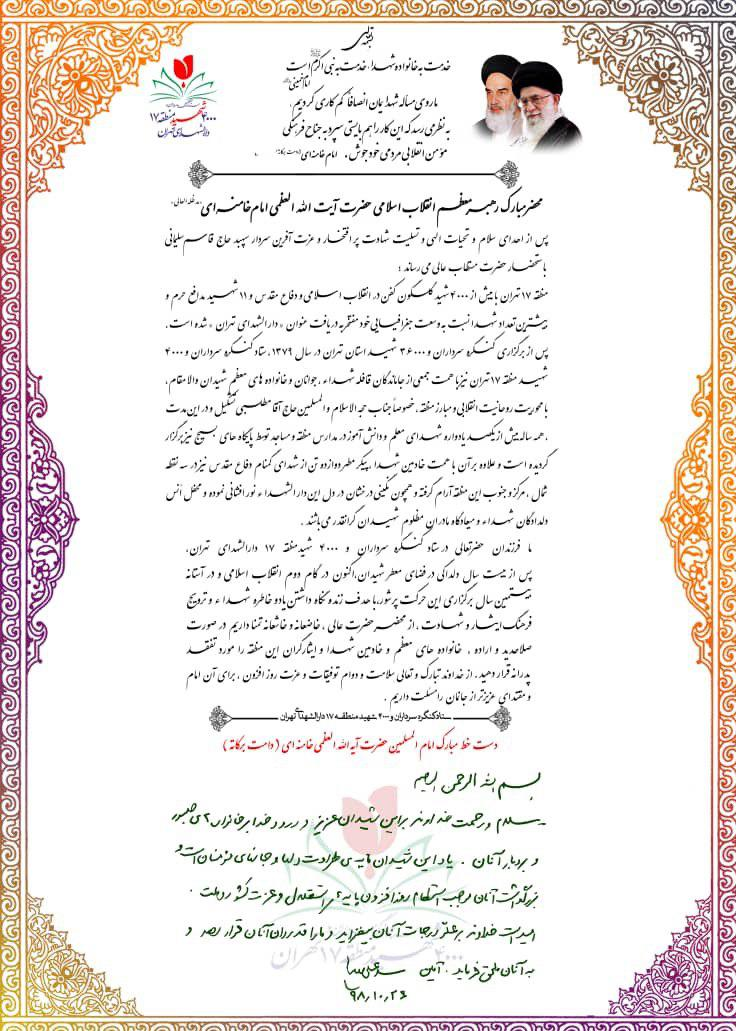 بسمه تعالی
خدمت به خانواده شهدا، خدمت به نبی اکرم است
امام خمینی
ما روی مساله شهدایمان انصافا کم کاری کردیم،
به نظر می رسد که این کار را هم بایستی سپرد به جناح فرهنگی
مؤمن انقلابی مردمی خودجوش. امام خامنه ای (دامت برکاته)
۴۰۰۰ شهید منطقه ۱۷
دارالشهدای تهران
محضر مبارک رهبر معظم انقلاب اسلامی حضرت آیت الله العظمی امام خامنه ای مدظله العالی
پس از اهدای سلام و تحیات الهی و تسلیت شهادت پر افتخار و عزت آفرین سردار سپهبد حاج قاسم سلیمانی
باستحضار حضرت مستطاب عالی می رساند ؛
منطقه ۱۷ تهران با بیش از ۴۰۰۰ شهید گلگون کفن در انقلاب اسلامی و دفاع مقدس و ۱۱ شهید مدافع حرم و
بیشترین تعداد شهدا نسبت به وسعت جغرافیایی خود مفتخر به دریافت عنوان « دارالشهدای تهران » شده است .
پس از برگزاری کنگره سرداران و ۳۶۰۰۰ شهید استان تهران در سال ۱۳۷۹، ستاد کنگره سرداران و ۴۰۰۰
شهید منطقه ۱۷ تهران نیز با همت جمعی از جاماندگان قافله شهداء ، جوانان و خانواده های معظم شهیدان والامقام،
با محوریت روحانیت انقلابی و مبارز منطقه ، خصوصاً جناب حجه الاسلام والمسلمین حاج آقا مطلبی تشکیل و در این مدت
، همه ساله بیش از یکصد یادواره شهدای معلم و دانش آموز در مدارس منطقه و مساجد توسط پایگاه های بسیج نیز برگزار
گردیده است و علاوه بر آن با همت خادمین شهدا ،پیکر مطهر دوازده تن از شهدای گمنام دفاع مقدس نیز در سه نقطه
شمال ، مرکز و جنوب این منطقه آرام گرفته و همچون نگینی درخشان در دل این دارالشهداء نور افشانی نموده و محفل انس
دلدادگان شهداء و میعادگاه مادران مظلوم شهیدان گرانقدر می باشند .
ما فرزندان حضرتعالی در ستاد کنگره سرداران و ۴۰۰۰ شهید منطقه ۱۷ دارالشهدای تهران،
پس از بیست سال دلدادگی در فضای معطر شهیدان،اکنون در گام دوم انقلاب اسلامی و در آستانه
بیستمین سال برگزاری این حرکت پرشور،با هدف زنده نگاه داشتن یاد و خاطره شهداء و ترویج
فرهنگ ایثار و شهادت ، از محضر حضرت عالی ، خاضعانه و خاشعانه تمنا داریم در صورت
صلاحدید و اراده ، خانواده های معظم و خادمین شهدا و ایثارگران این منطقه را مورد تفقد
پدرانه قرار دهید ، از خداوند تبارک و تعالی سلامت و دوام توفیقات و عزت روز افزون ، برای آن امام
و مقتدای عزیزتر از جانمان را مسئلت داریم .
ستاد کنگره سرداران و ۴۰۰۰ شهید منطقه ۱۷ دارالشهدای تهران
دست خط مبارک امام المسلمین حضرت آیه الله العظمی خامنه ای ( دامت برکاته )
بسم الله الرحمن الرحیم
- سلام و رحمت خداوند بر این شهیدان عزیز و درود خدا بر خانواده‌های صبور
و بردبار آنان . یاد این شهیدان مایه‌ی طراوت دلها و جانهای مؤمنان است و
بزرگداشت آنان موجب استحکام روزافزون پایه‌های استقلال و عزت کشور و ملت .
امید است خداوند بر علوّ درجات آنان بیفزاید و ما را قدردان آنان قرار دهد و
به آنان ملحق فرماید . آمین
۹۸٫۱۰٫۲۶
۴۰۰۰ شهید منطقه ۱۷ تهران